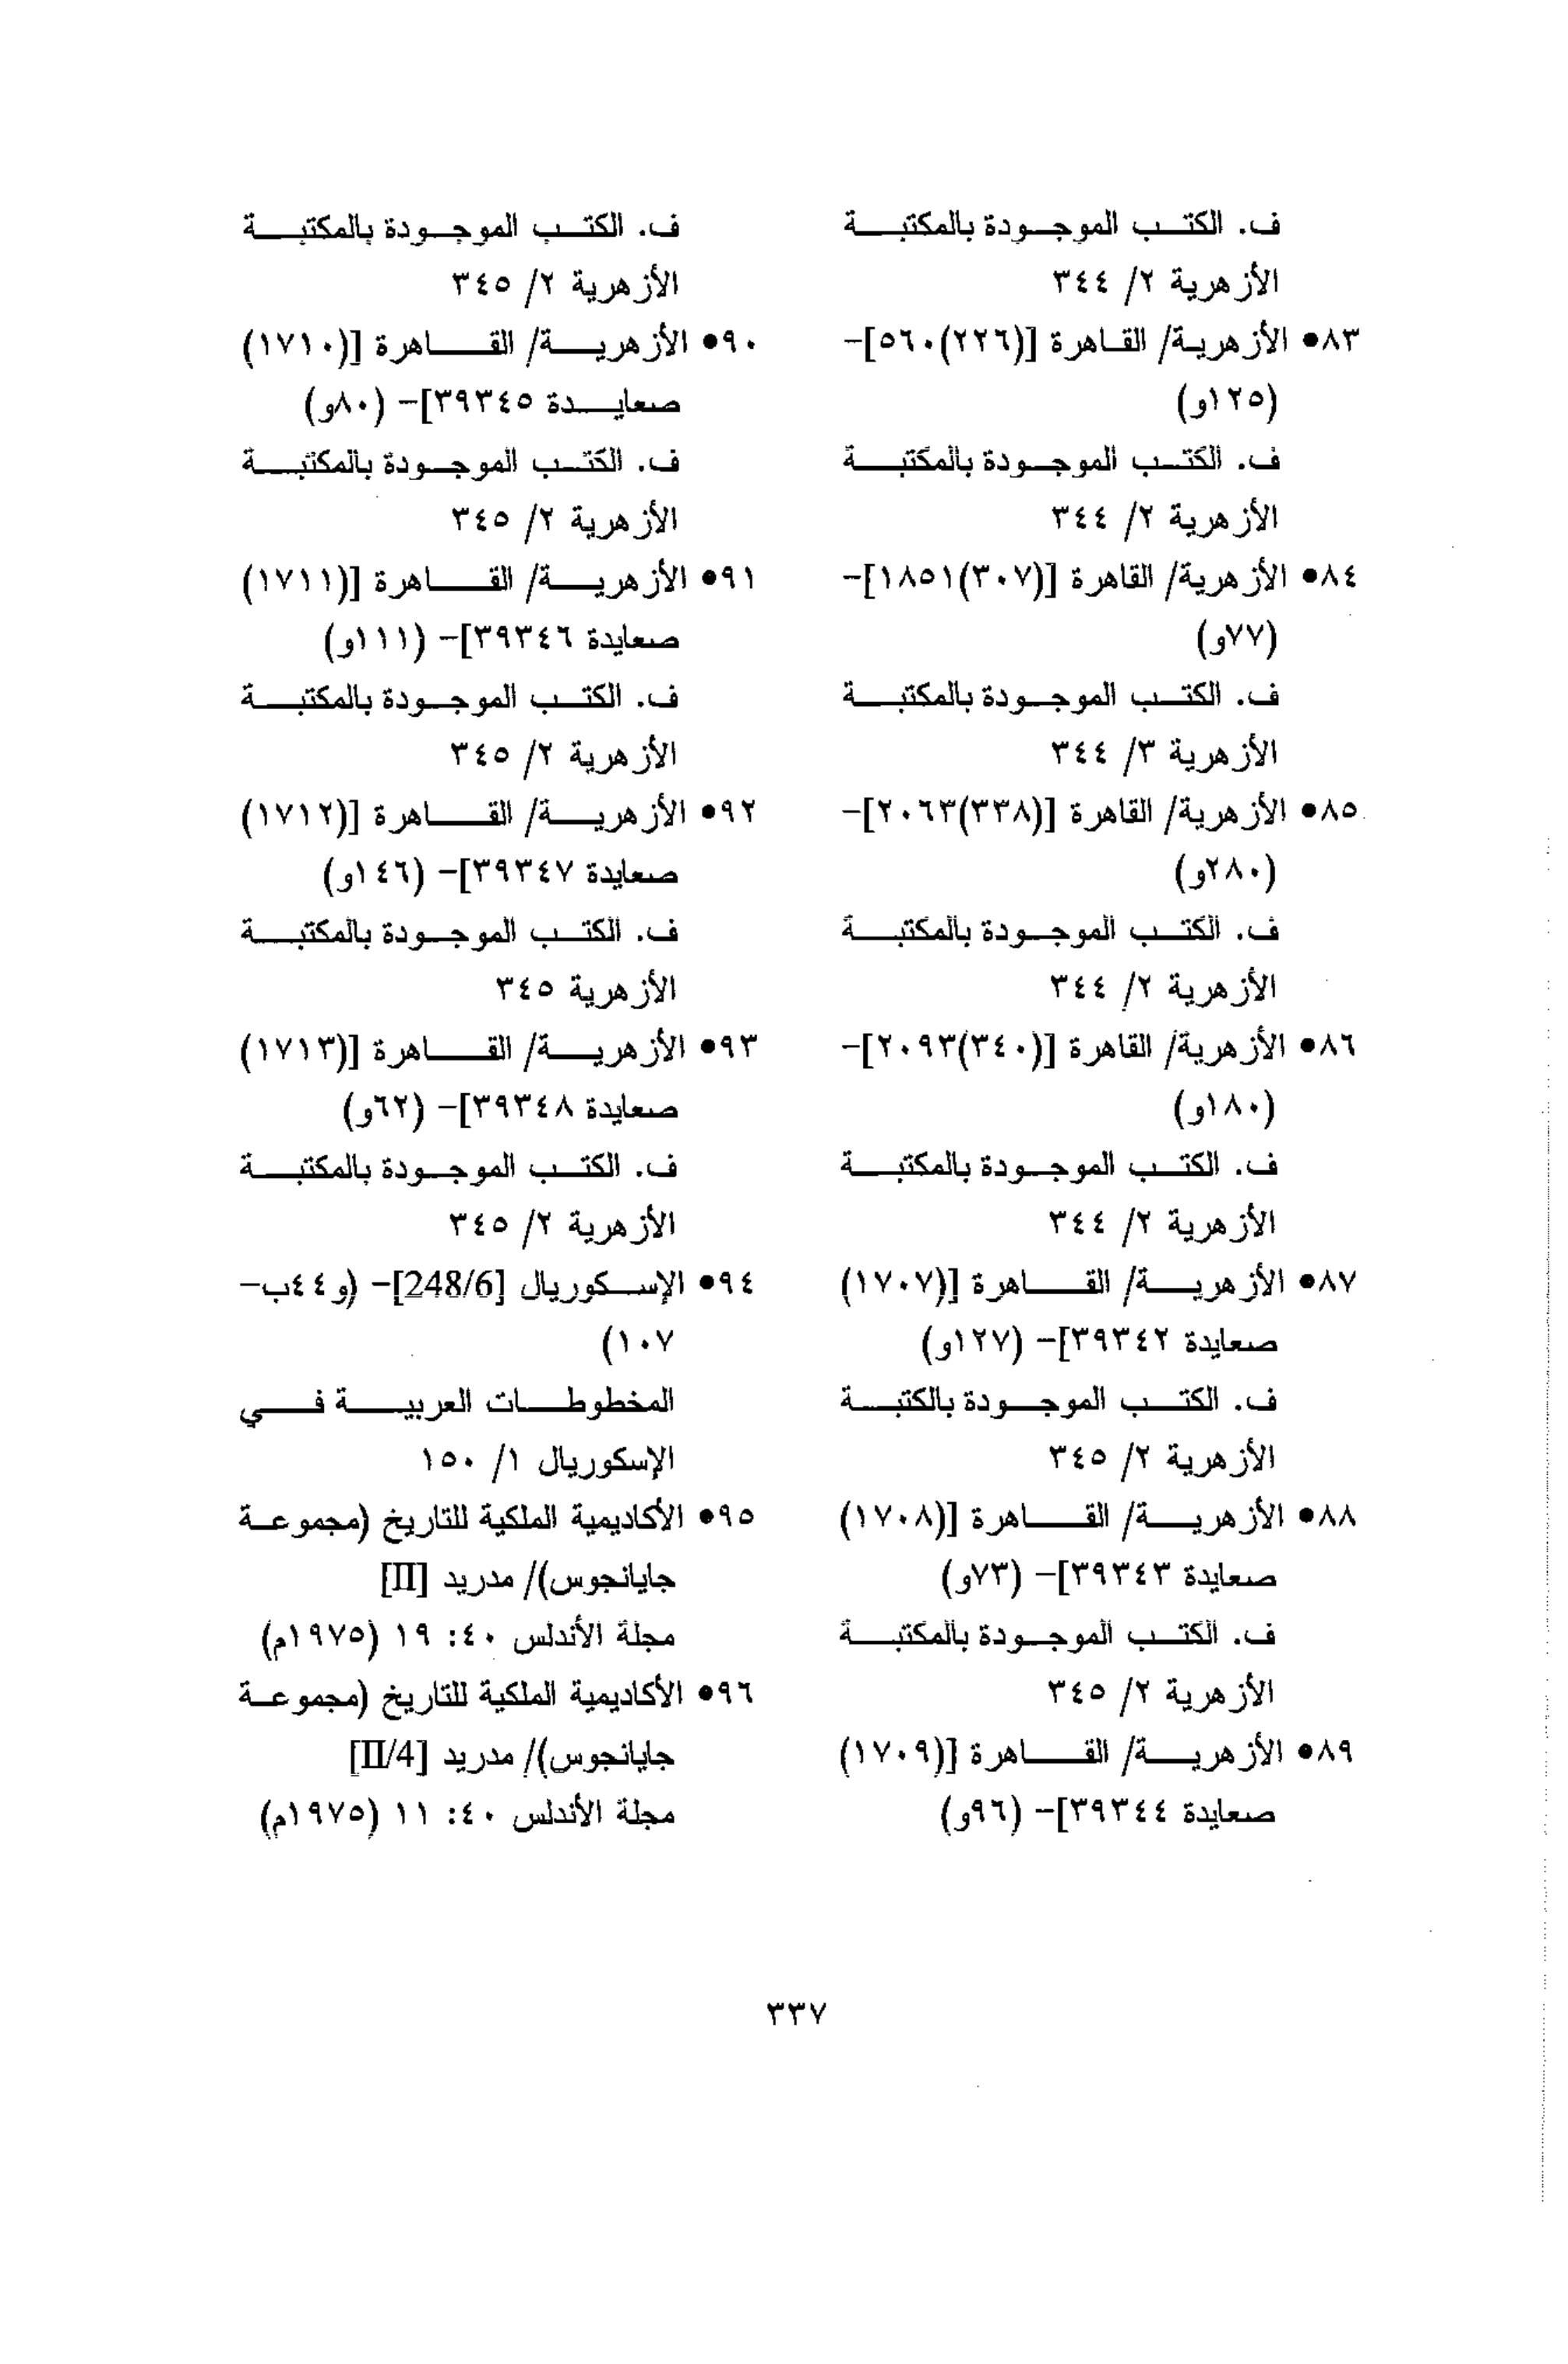 ف. الكتب الموجودة بالمكتبة
الأزهرية ٢/ ٣٤٤
٨٣• الأزهرية/ القاهرة [(٢٢٦)٥٦٠]-
(١٢٥و)
ف. الكتب الموجودة بالمكتبة
الأزهرية ٢/ ٣٤٤
٨٤• الأزهرية/ القاهرة [(٣٠٧)١٨٥١]-
(٧٧و)
ف. الكتب الموجودة بالمكتبة
الأزهرية ٣/ ٣٤٤
٨٥• الأزهرية/ القاهرة [(٣٣٨)٢٠٦٣]-
(٢٨٠و)
ف. الكتب الموجودة بالمكتبة
الأزهرية ٢/ ٣٤٤
٨٦• الأزهرية/ القاهرة [(٣٤٠)٢٠٩٣]-
(١٨٠و)
ف. الكتب الموجودة بالمكتبة
الأزهرية ٢/ ٣٤٤
٨٧• الأزهرية/ القاهرة [(١٧٠٧)
صعايدة ٣٩٣٤٢]- (١٢٧و)
ف. الكتب الموجودة بالكتبة
الأزهرية ٢/ ٣٤٥
٨٨• الأزهرية/ القاهرة [(١٧٠٨)
صعايدة ٣٩٣٤٣]- (٧٣و)
ف. الكتب الموجودة بالمكتبة
الأزهرية ٢/ ٣٤٥
٨٩• الأزهرية/ القاهرة [(١٧٠٩)
صعايدة ٣٩٣٤٤]- (٩٦و)
ف. الكتب الموجودة بالمكتبة
الأزهرية ٢/ ٣٤٥
٩٠• الأزهرية/ القاهرة [(١٧١٠)
صعايدة ٣٩٣٤٥]- (٨٠و)
ف. الكتب الموجودة بالمكتبة
الأزهرية ٢/ ٣٤٥
٩١• الأزهرية/ القاهرة [(١٧١١)
صعايدة ٣٩٣٤٦]- (١١١و)
ف. الكتب الموجودة بالمكتبة
الأزهرية ٢/ ٣٤٥
٩٢• الأزهرية/ القاهرة [(١٧١٢)
صعايدة ٣٩٣٤٧]- (١٤٦و)
ف. الكتب الموجودة بالمكتبة
الأزهرية ٣٤٥
٩٣• الأزهرية/ القاهرة [(١٧١٣)
صعايدة ٣٩٣٤٨]- (٦٢و)
ف. الكتب الموجودة بالمكتبة
الأزهرية ٢/ ٣٤٥
٩٤• الإسكوريال [248/6]- (و٤٤ب-
١٠٧)
المخطوطات العربية في
الإسكوريال ١/ ١٥٠
٩٥• الأكاديمية الملكية للتاريخ (مجموعة
جايانجوس)/ مدريد [II]
مجلة الأندلس ٤٠: ١٩ (١٩٧٥م)
٩٦• الأكاديمية الملكية للتاريخ (مجموعة
جايانجوس)/ مدريد [II/4]
مجلة الأندلس ٤٠: ١١ (١٩٧٥م)
٣٣٧